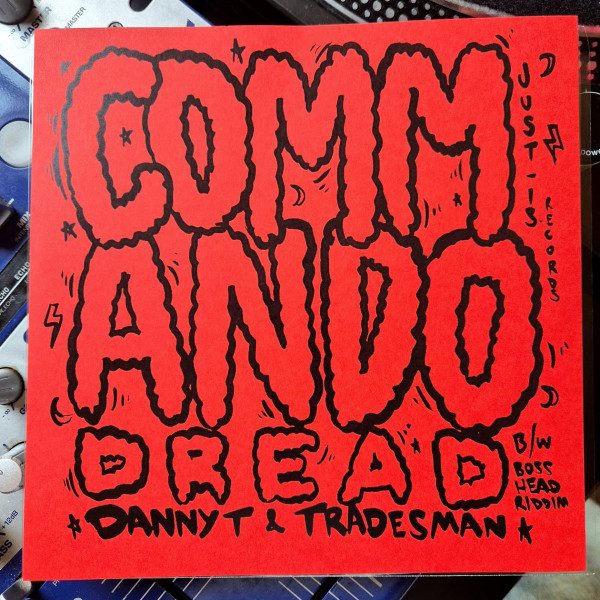 COMM
ANDO
DREAD
DANNY T & TRADESMAN
JUST-IS
RECORDS
B/W
BOSS
HEAD
RIDDIM
MASTER
MASTER
ECHO
+12dB
BASS